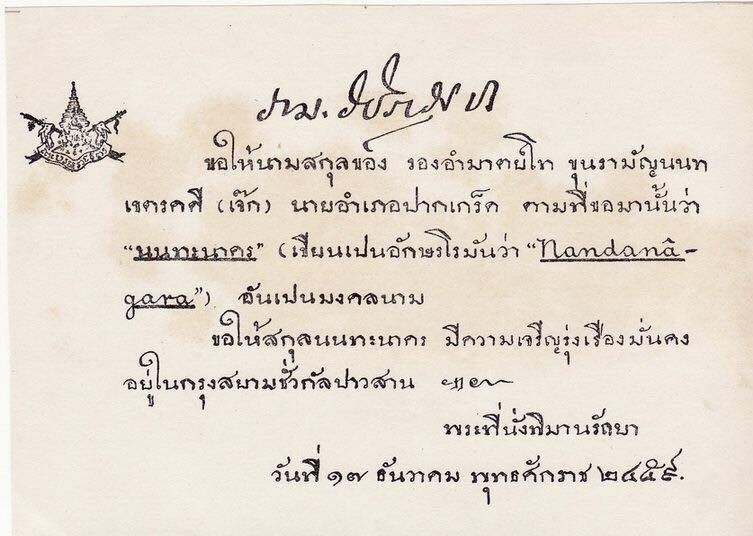 ราม. วชิราวุธ ปร
ขอให้นามสกุลของ รองอำมาตย์โท ขุนรามัญนนท
เขตรคดี (เจ๊ก) นายอำเภอปากเกร็ด ตามที่ขอมานั้นว่า
“นนทะนาคร” (เขียนเปนอักษรโรมันว่า “Nandanâ-
gara”) อันเปนมงคลนาม
ขอให้สกุลนนทะนาคร มีความเจรีญรุ่งเรืองมั่นคง
อยู่ในกรุงสยามชั่วกัลปาวสาน ๚ะ๛
พระที่นั่งพิมานรัถยา
วันที่ ๑๗ ธันวาคม พุทธศักราช ๒๔๕๙.